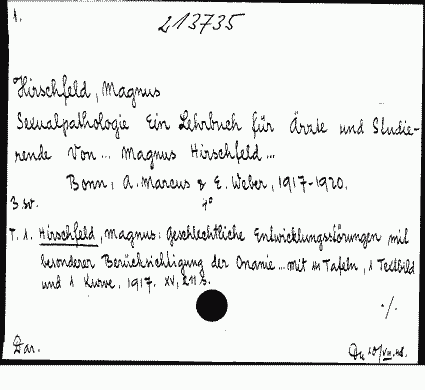 1.
213735
Hirschfeld, Magnus
Sexualpathologie Ein Lehrbuch für Ärzte und Studie-
rende Von... Magnus Hirschfeld...
Bonn, A. Marcus & E. Weber, 1917-1920.
3 sv. 4°
T. 1. Hirschfeld, Magnus: Geschlechtliche Entwicklungsstörungen mit
besonderer Berücksichtigung der Onanie... mit 14 Tafeln, 1 Textbild
und 1 Kurve. 1917. XV, 211 s.
./.
Dar. 10/VIII.48.